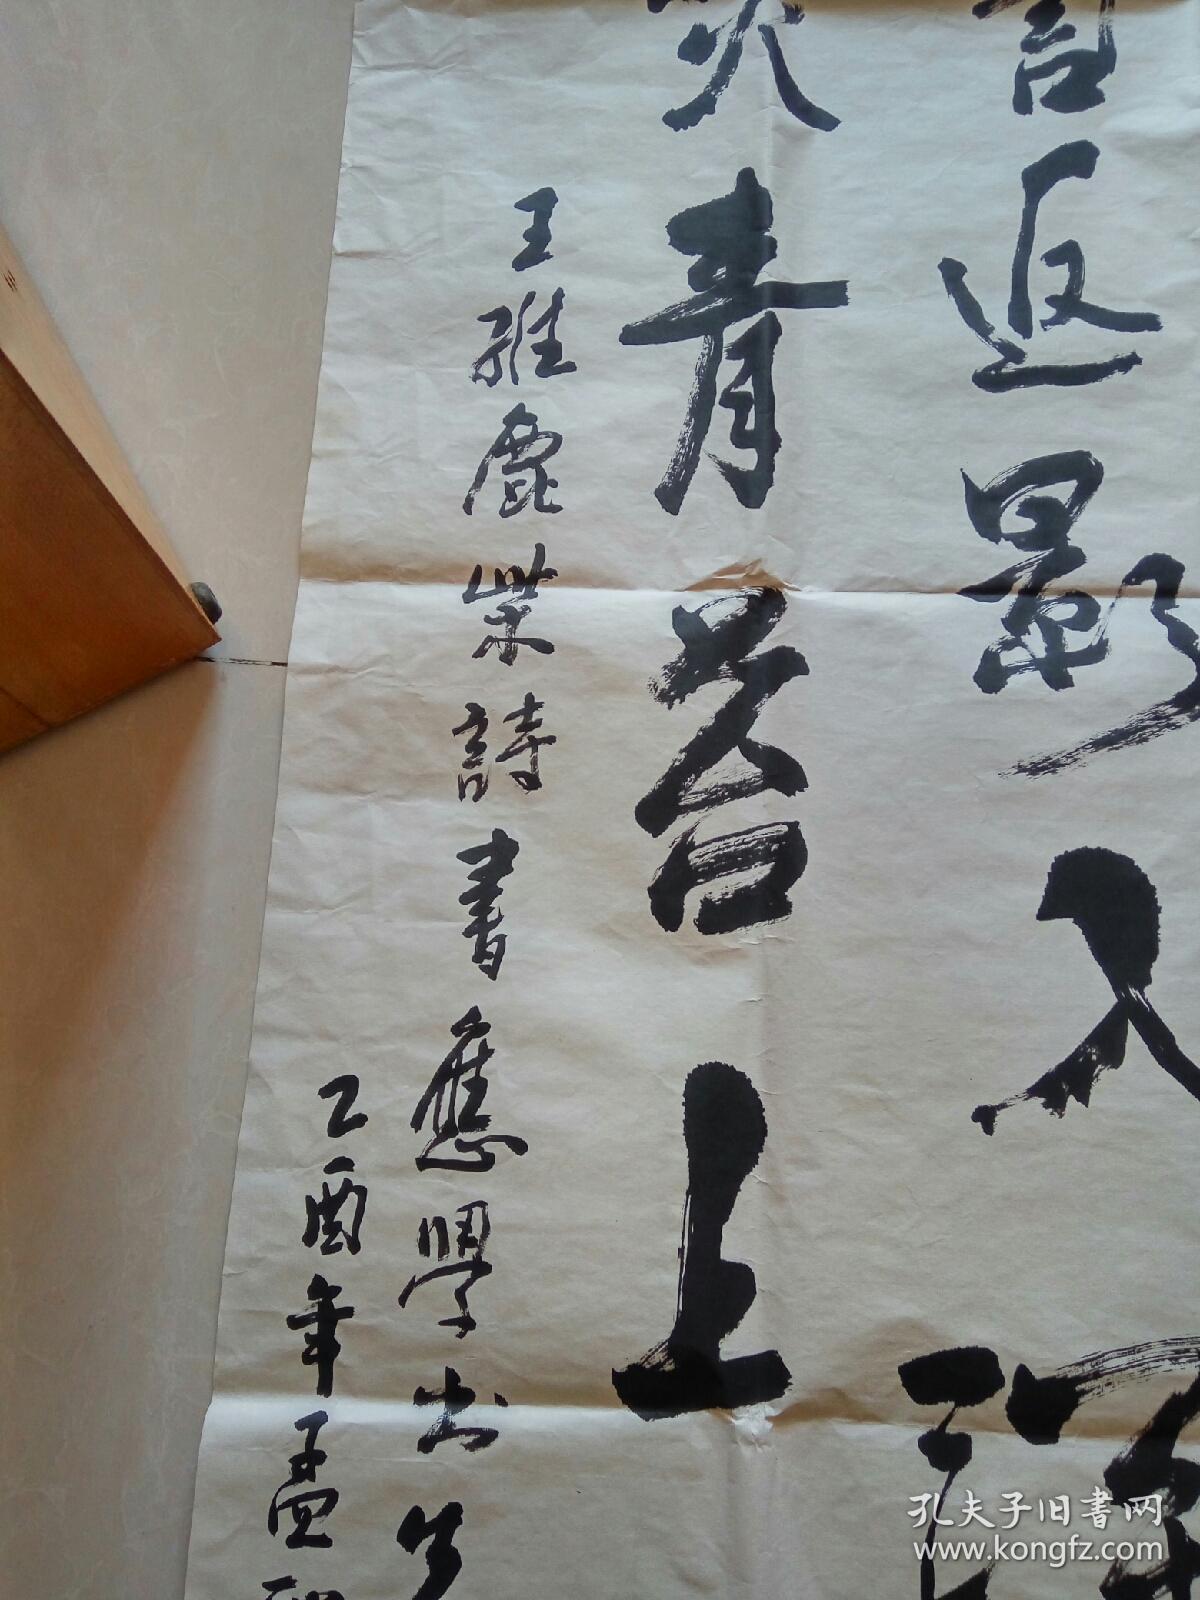 言返景入深
青苔上
王維鹿柴詩書應學出生
乙酉年孟
孔夫子旧书网
www.kongfz.com